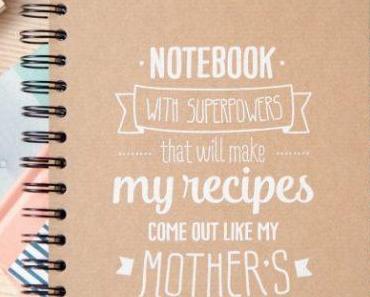 · NOTEBOOK ·
WITH SUPERPOWERS
that will make
my recipes
COME OUT LIKE MY
MOTHER'S